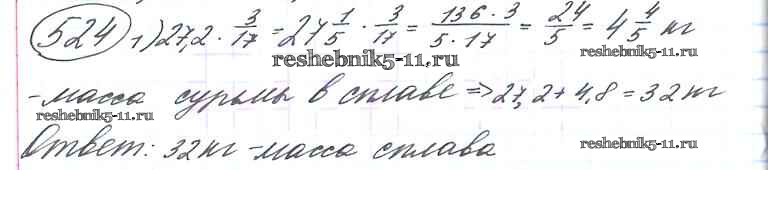 524 1) 27,2 · 3/17 = 27 1/5 · 3/17 = 136·3/5·17 = 24/5 = 4 4/5 кг
reshebnik5-11.ru
- масса сурьмы в сплаве => 27,2 + 4,8 = 32 кг
reshebnik5-11.ru
Ответ: 32 кг - масса сплава
reshebnik5-11.ru